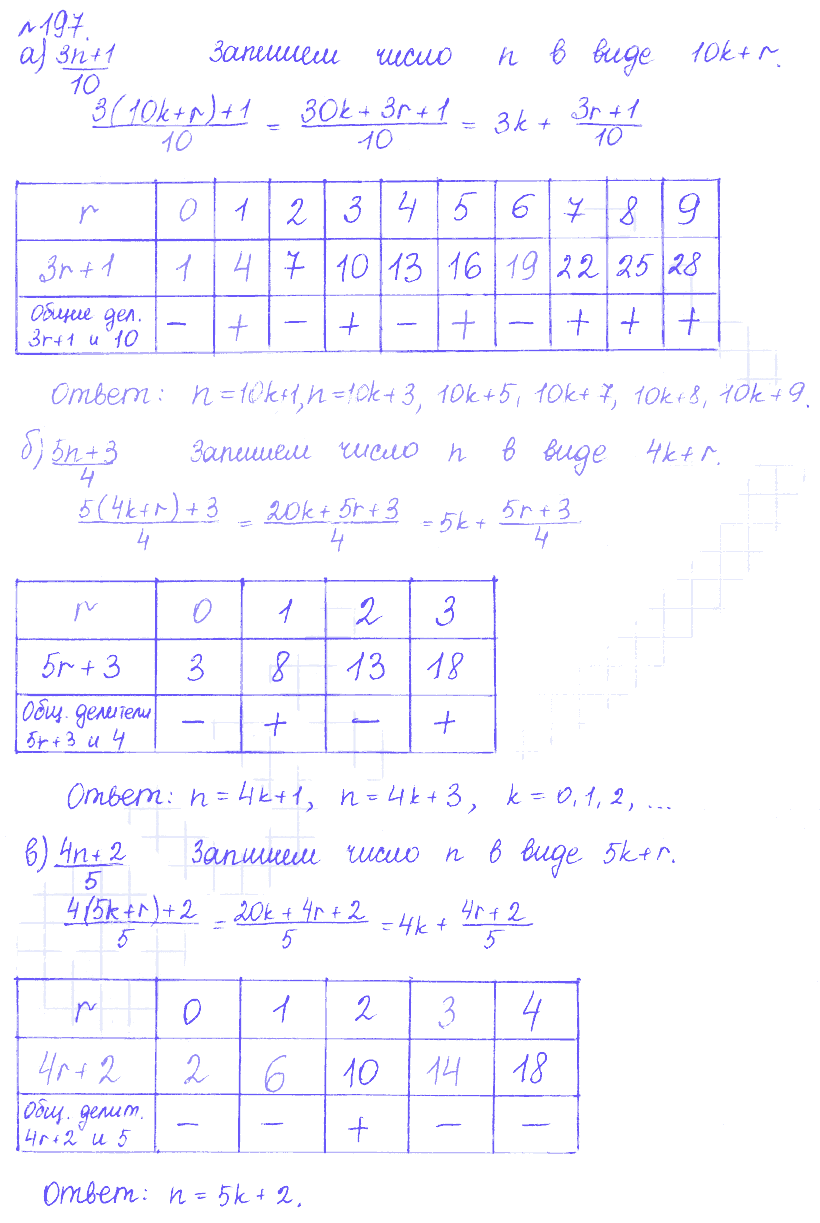 №197.
а) (3n+1)/10 Запишем число n в виде 10k+r.
(3(10k+r)+1)/10 = (30k+3r+1)/10 = 3k + (3r+1)/10
r 0 1 2 3 4 5 6 7 8 9
3r+1 1 4 7 10 13 16 19 22 25 28
Общие дел. 3r+1 и 10 − + − + − + − + + +
Ответ: n=10k+1, n=10k+3, 10k+5, 10k+7, 10k+8, 10k+9.
б) (5n+3)/4 Запишем число n в виде 4k+r.
(5(4k+r)+3)/4 = (20k+5r+3)/4 = 5k + (5r+3)/4
r 0 1 2 3
5r+3 3 8 13 18
Общ. делители 5r+3 и 4 − + − +
Ответ: n=4k+1, n=4k+3, k=0,1,2,...
в) (4n+2)/5 Запишем число n в виде 5k+r.
(4(5k+r)+2)/5 = (20k+4r+2)/5 = 4k + (4r+2)/5
r 0 1 2 3 4
4r+2 2 6 10 14 18
Общ. делит. 4r+2 и 5 − − + − −
Ответ: n=5k+2.